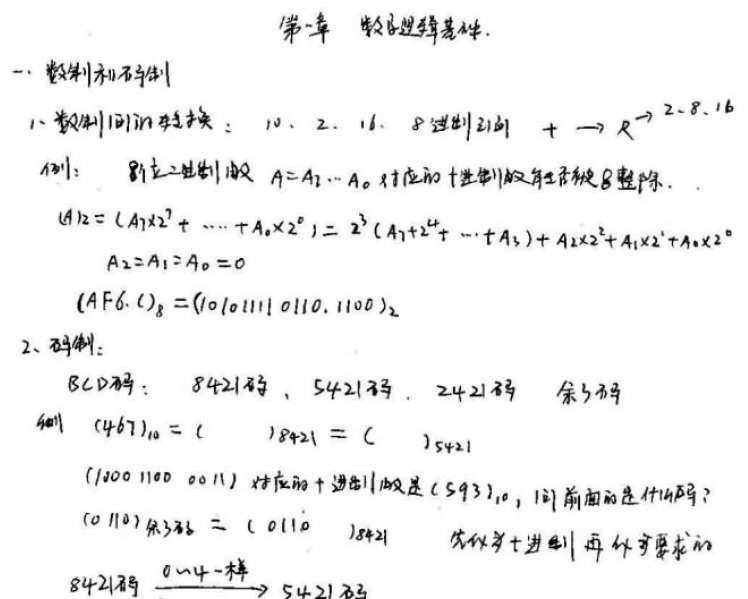 第一章 数字逻辑基础.
一. 数制和码制
1、数制间的转换: 10、2、16、8进制之间 十 → R → 2、8、16
例: 8位二进制数 A=A7…A0 对应的十进制数能否被8整除.
(A)2 = (A7×2^7 + …… + A0×2^0) = 2^3 (A7+2^4+ … +A3) + A2×2^2+A1×2^1+A0×2^0
A2=A1=A0=0
(AF6.C)8 = (10101111 0110.1100)2
2、码制:
BCD码: 8421码、5421码、2421码 余3码
例 (467)10 = ( )8421 = ( )5421
(1000 1100 0011) 对应的十进制数是(593)10, 问前面的是什么码?
(0110)余3码 = (0110 )8421 先化为十进制 再化为要求的
8421码 0~4一样 → 5421码